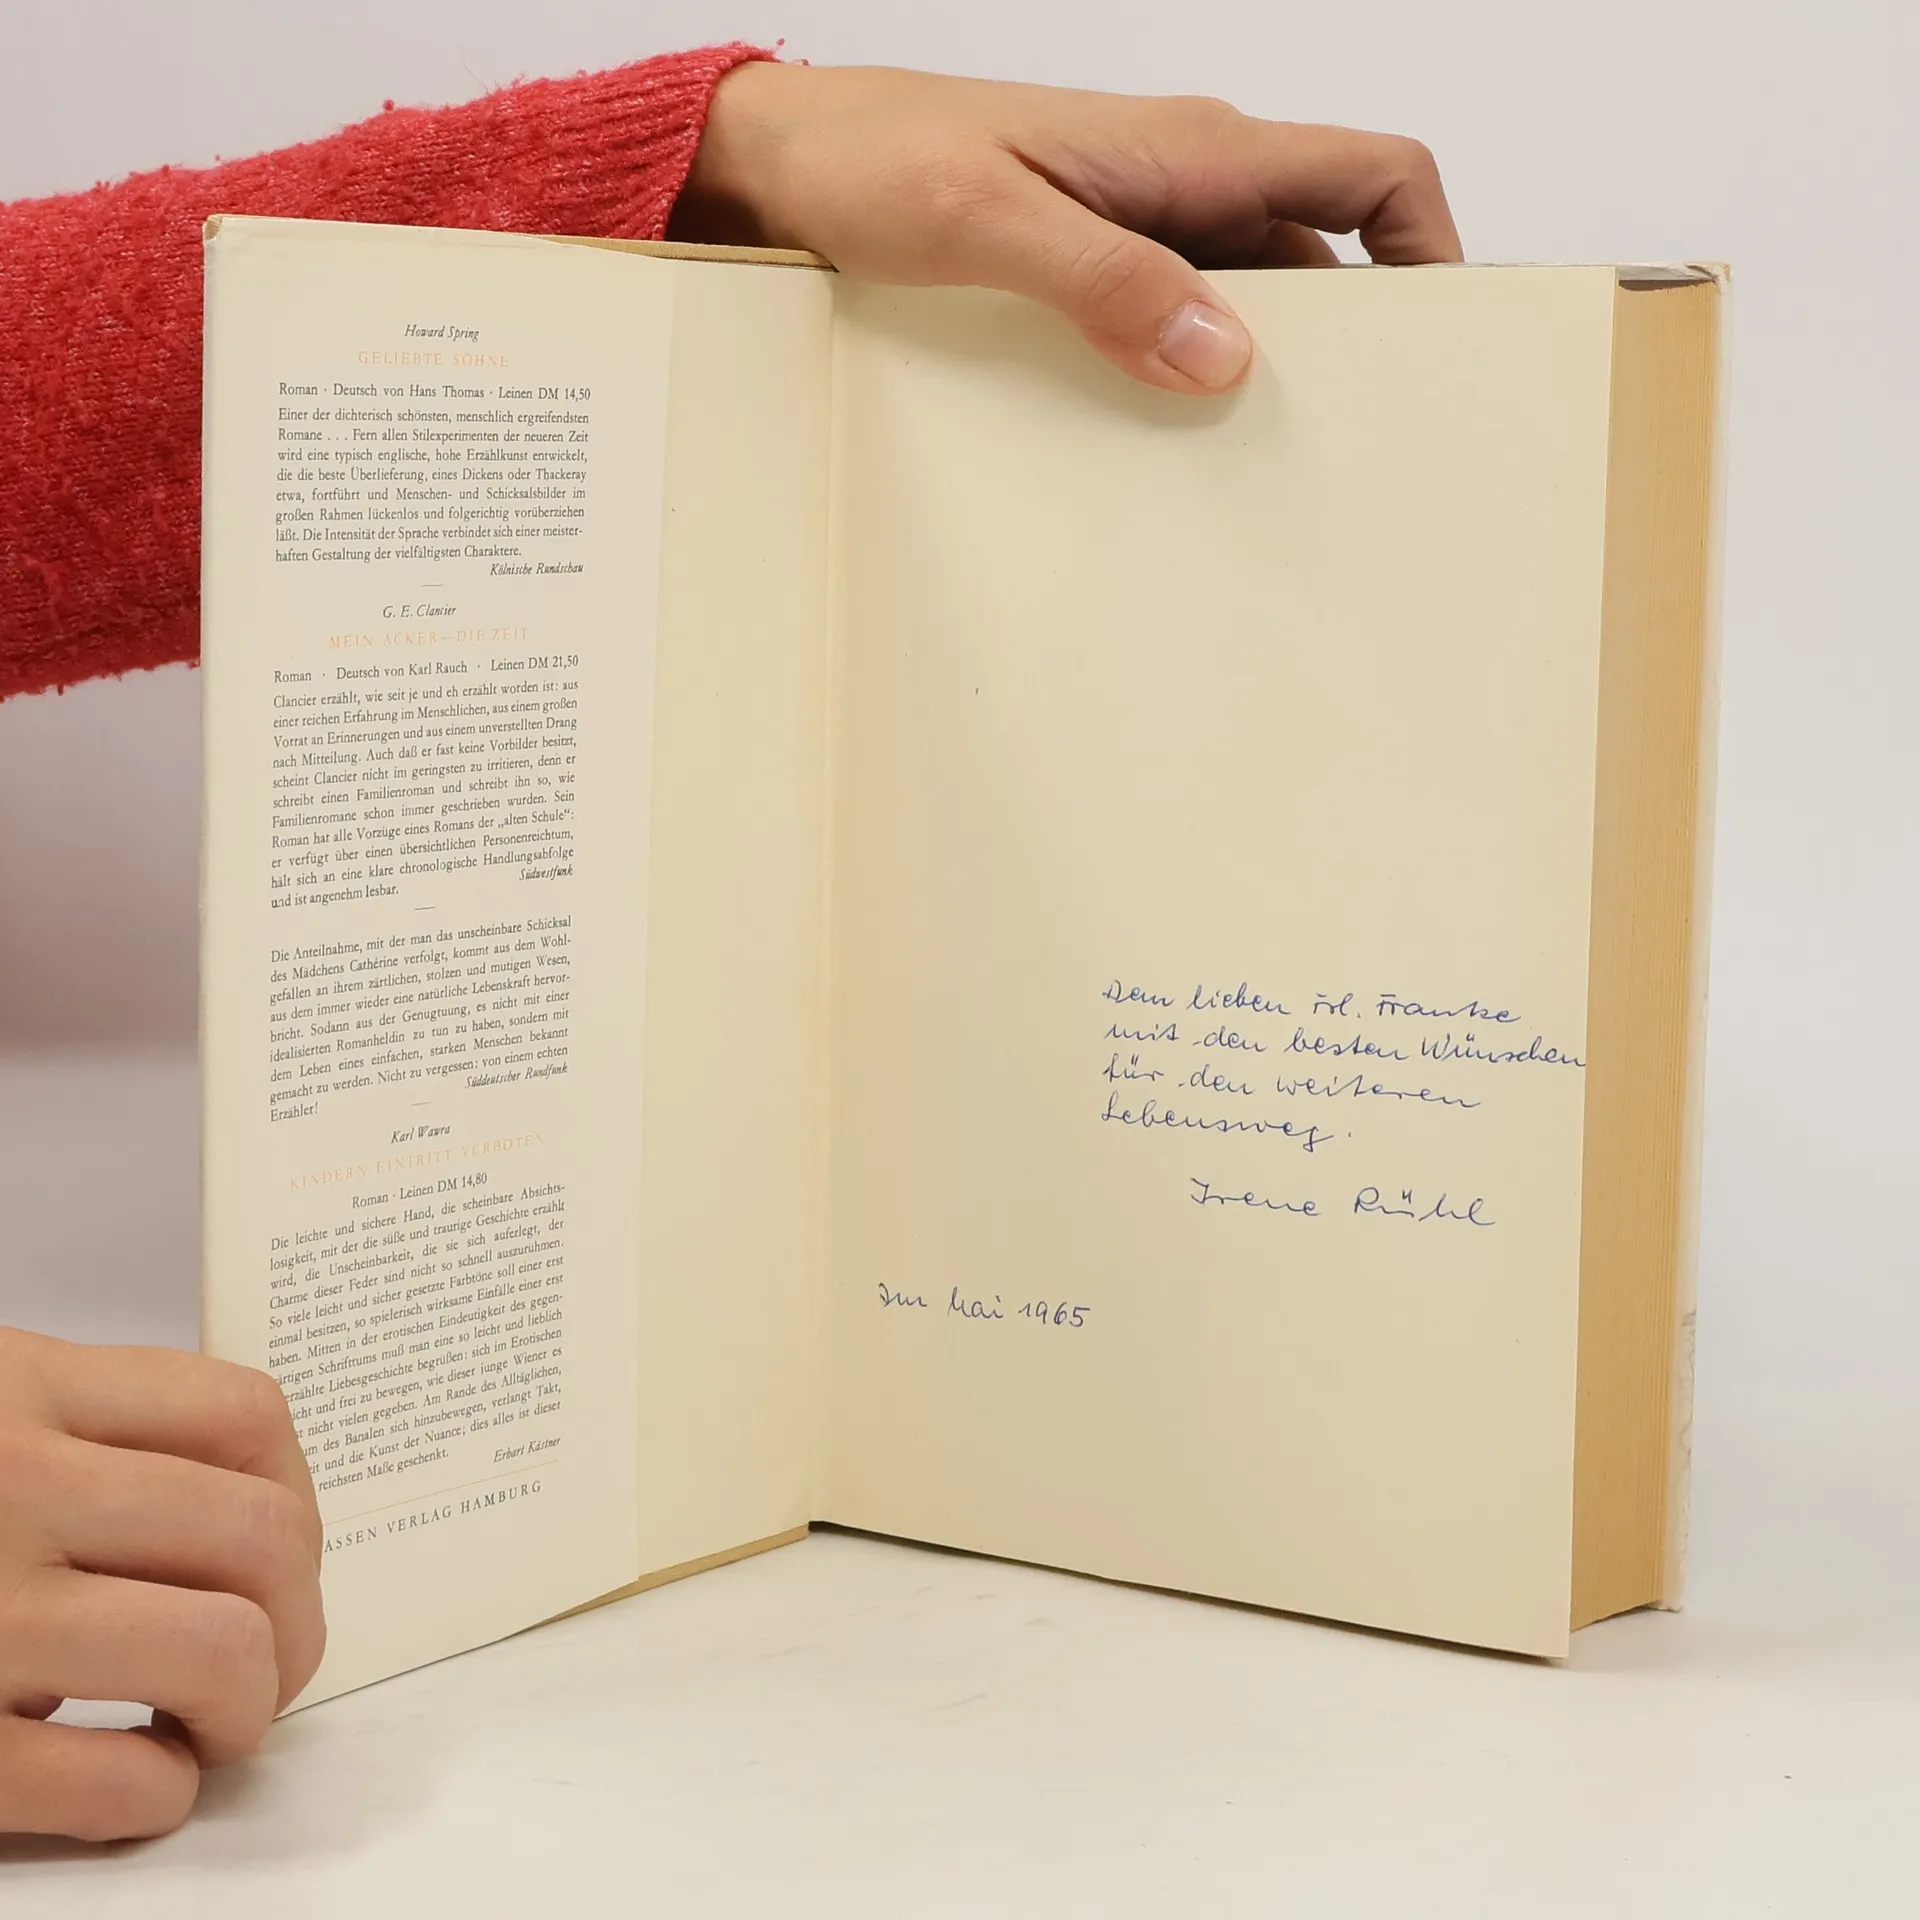 Howard Spring
GELIEBTE SÖHNE
Roman · Deutsch von Hans Thomas · Leinen DM 14,50
Einer der dichterisch schönsten, menschlich ergreifendsten
Romane . . . Fern allen Stilexperimenten der neueren Zeit
wird eine typisch englische, hohe Erzählkunst entwickelt,
die die beste Überlieferung, eines Dickens oder Thackeray
etwa, fortführt und Menschen- und Schicksalsbilder im
großen Rahmen lückenlos und folgerichtig vorüberziehen
läßt. Die Intensität der Sprache verbindet sich einer meister-
haften Gestaltung der vielfältigsten Charaktere.
Kölnische Rundschau
G. E. Clancier
MEIN ACKER—DIE ZEIT
Roman · Deutsch von Karl Rauch · Leinen DM 21,50
Clancier erzählt, wie seit je und eh erzählt worden ist: aus
einer reichen Erfahrung im Menschlichen, aus einem großen
Vorrat an Erinnerungen und aus einem unverstellten Drang
nach Mitteilung. Auch daß er fast keine Vorbilder besitzt,
scheint Clancier nicht im geringsten zu irritieren, denn er
schreibt einen Familienroman und schreibt ihn so, wie
Familienromane schon immer geschrieben wurden. Sein
Roman hat alle Vorzüge eines Romans der „alten Schule“:
er verfügt über einen übersichtlichen Personenreichtum,
hält sich an eine klare chronologische Handlungsabfolge
und ist angenehm lesbar.
Südwestfunk
Die Anteilnahme, mit der man das unscheinbare Schicksal
des Mädchens Cathérine verfolgt, kommt aus dem Wohl-
gefallen an ihrem zärtlichen, stolzen und mutigen Wesen,
aus dem immer wieder eine natürliche Lebenskraft hervor-
bricht. Sodann aus der Genugtuung, es nicht mit einer
idealisierten Romanheldin zu tun zu haben, sondern mit
dem Leben eines einfachen, starken Menschen bekannt
gemacht zu werden. Nicht zu vergessen: von einem echten
Erzähler!
Süddeutscher Rundfunk
Karl Wawra
KINDERN EINTRITT VERBOTEN
Roman · Leinen DM 14,80
Die leichte und sichere Hand, die scheinbare Absichts-
losigkeit, mit der die süße und traurige Geschichte erzählt
wird, die Unscheinbarkeit, die sie sich auferlegt, der
Charme dieser Feder sind nicht so schnell auszurühmen.
So viele leicht und sicher gesetzte Farbtöne soll einer erst
einmal besitzen, so spielerisch wirksame Einfälle einer erst
haben. Mitten in der erotischen Eindeutigkeit des gegen-
ärtigen Schrifttums muß man eine so leicht und lieblich
erzählte Liebesgeschichte begrüßen: sich im Erotischen
icht und frei zu bewegen, wie dieser junge Wiener es
st nicht vielen gegeben. Am Rande des Alltäglichen,
um des Banalen sich hinzubewegen, verlangt Takt,
eit und die Kunst der Nuance; dies alles ist dieser
reichsten Maße geschenkt.
Erhart Kästner
ASSEN VERLAG HAMBURG
Dem lieben Frl. Franke
mit den besten Wünschen
für den weiteren
Lebensweg.
Irene Rühl
Im Mai 1965